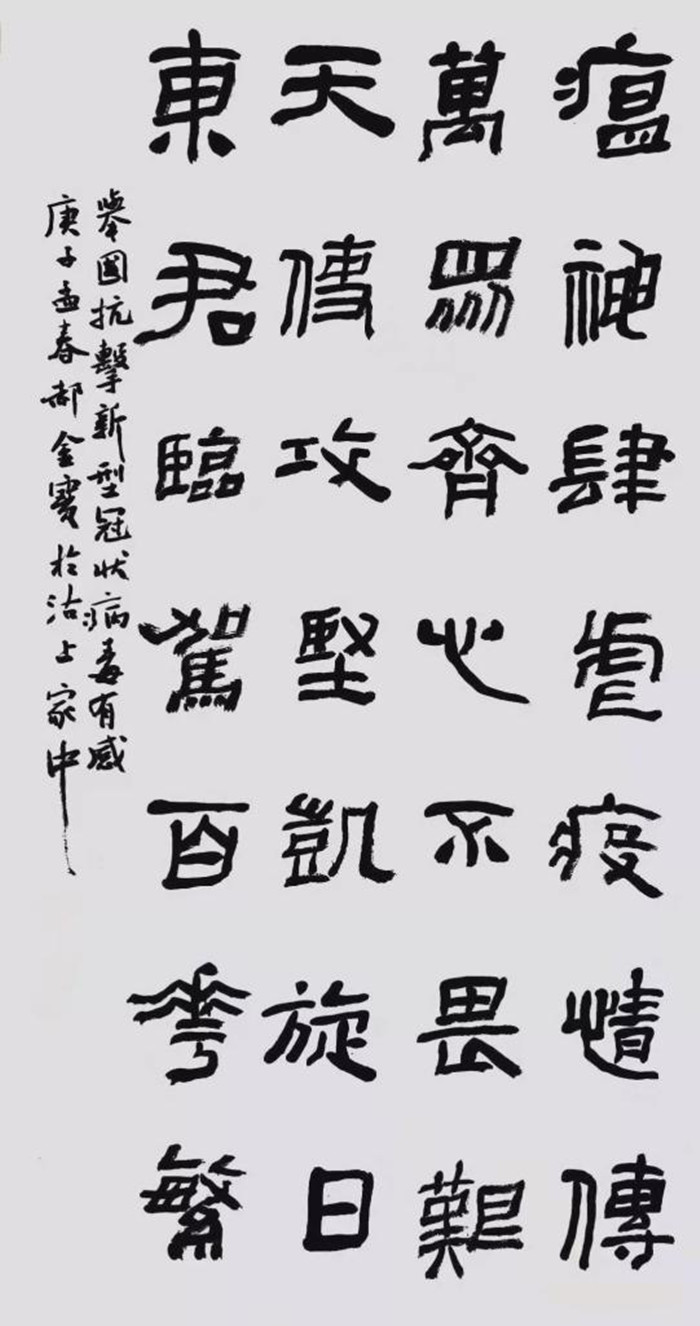 瘟神肆虐疫情傳
萬眾齊心不畏艱
天使攻堅凱旋日
東君臨駕百華繁
舉國抗擊新型冠狀病毒有感
庚子孟春郝金寶於沽上家中